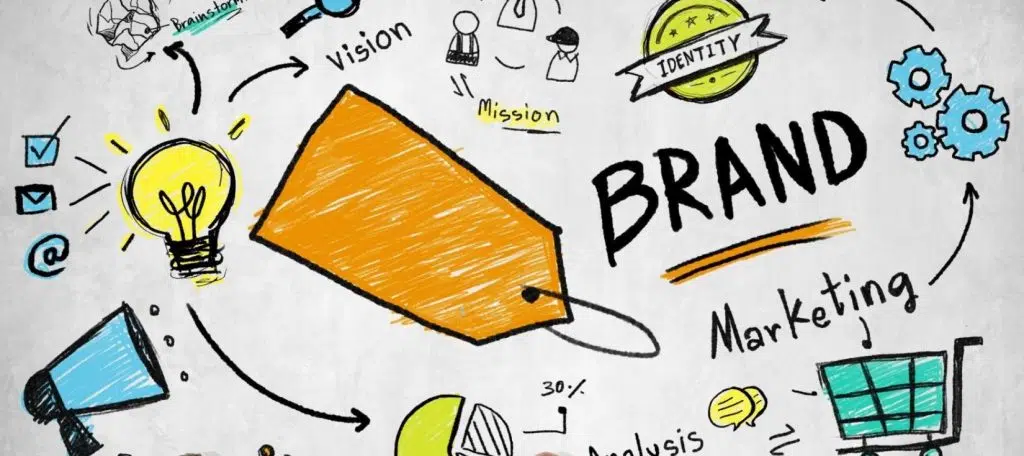 Brainstorm
Vision
Mission
IDENTITY
BRAND
@
Marketing
30%
Analysis